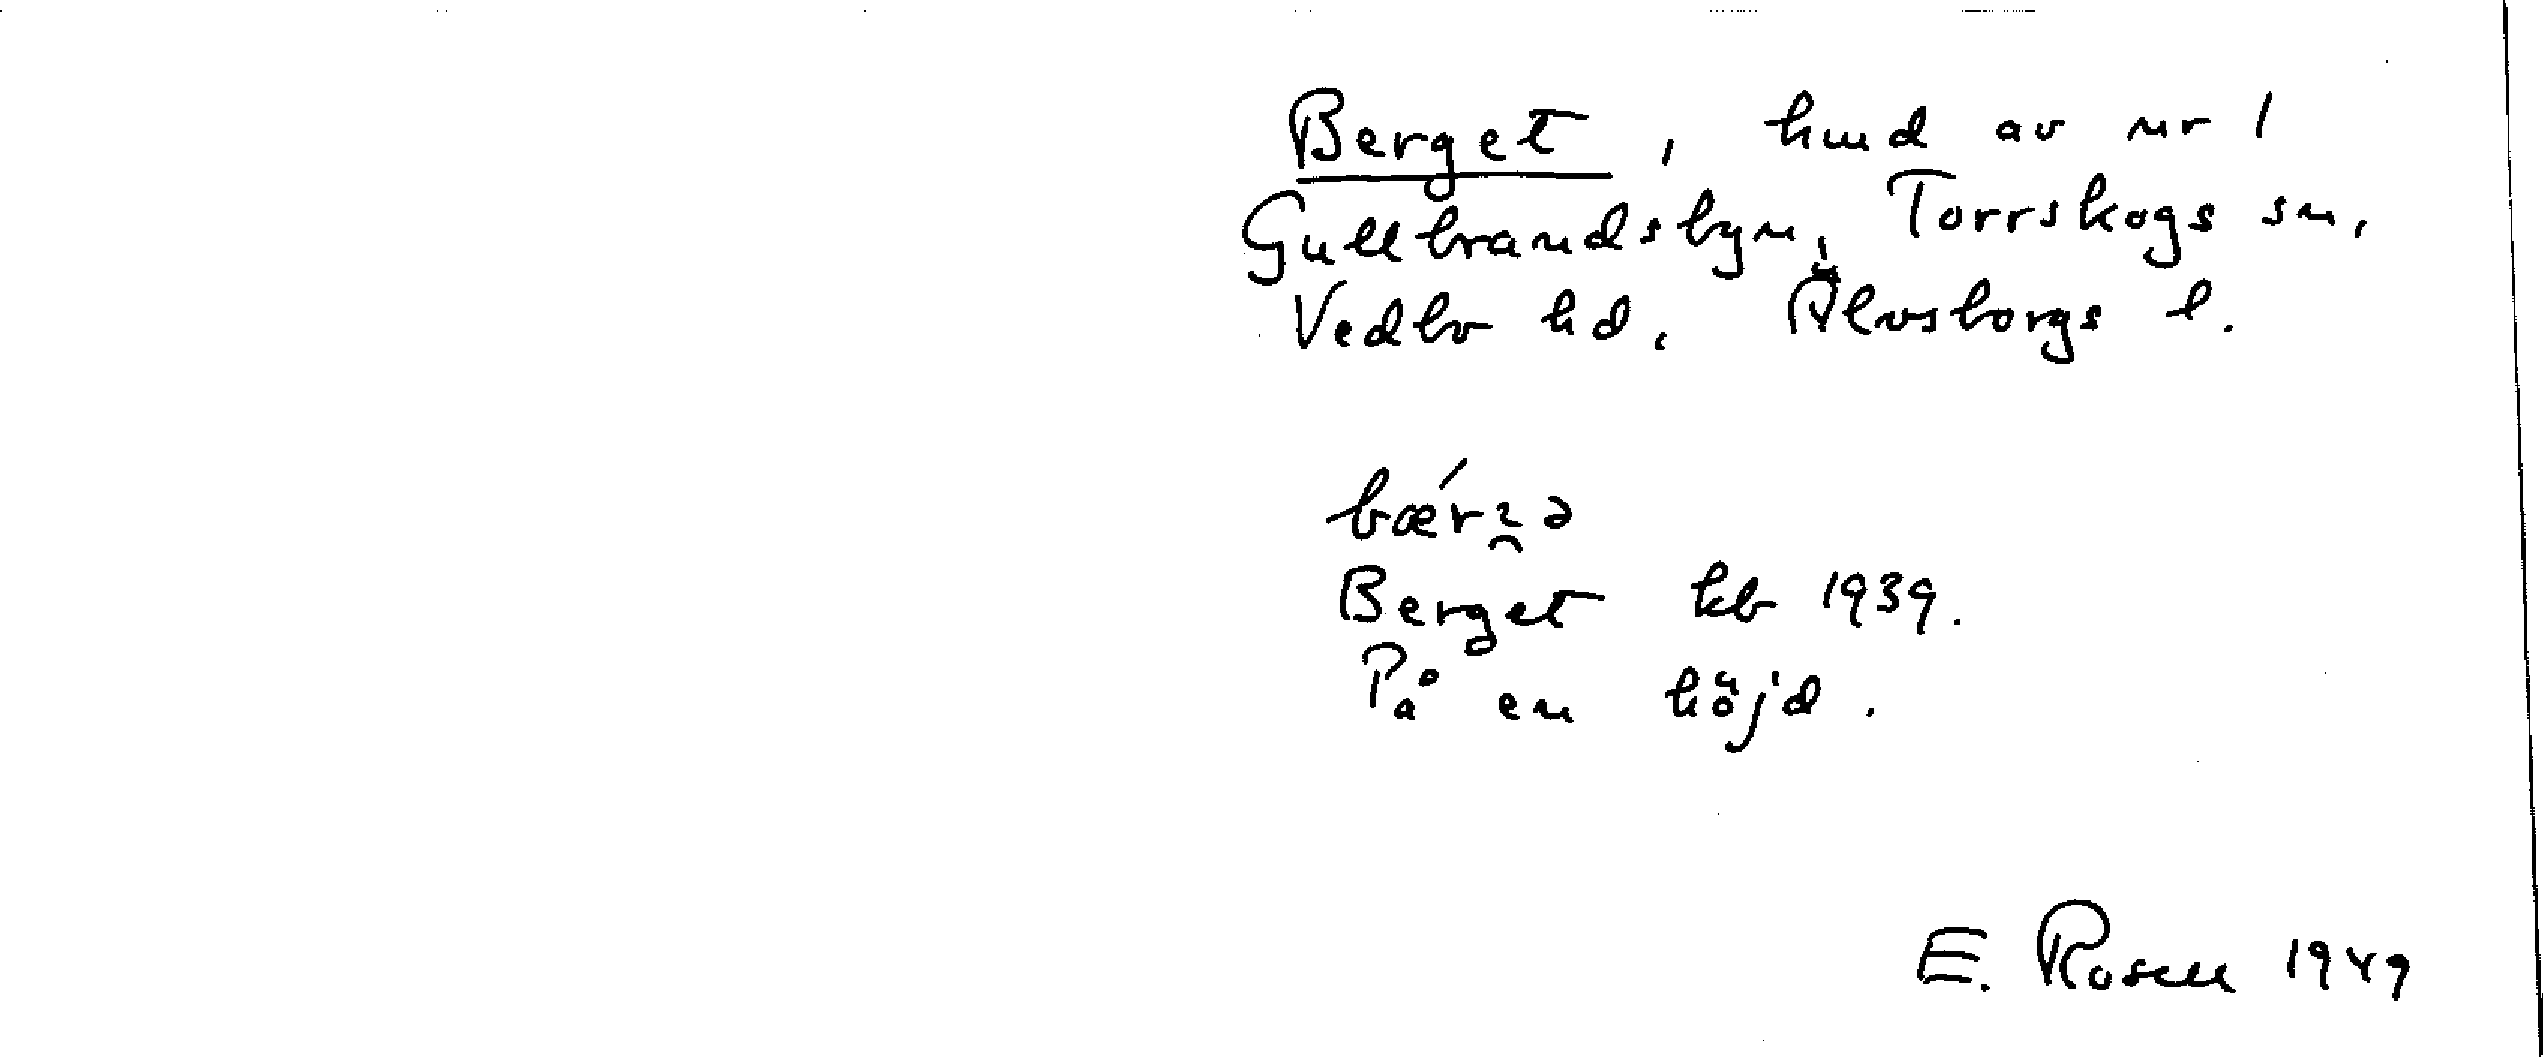 Berget, hmd av nr 1
Gullbrandsbyn, Torrskogs sn,
Vedbo hd, Älvsborgs l.
Berget kb 1939.
På en höjd.
E. Rosell 1949